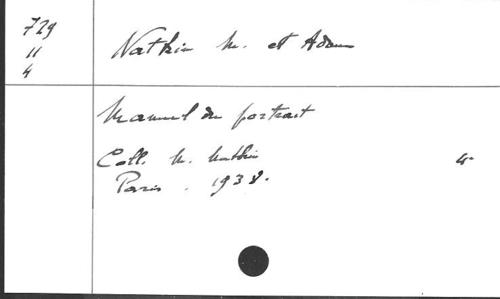 729
11
4
Natkin M. et Adam
Manuel du portrait
Coll. M. Natkin
4°
Paris . 1938.